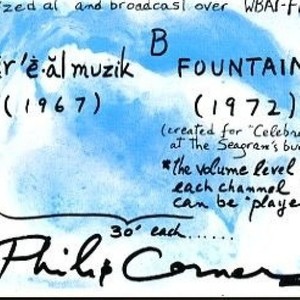 zed al and broadcast over WBAI-F
B
r'ĕ·ăl muzik FOUNTAIN
(1967) (1972)
(created for "Celebr
at the Seagram's bu
*the volume level
each channel
can be "playe
30' each......
Philip Corner